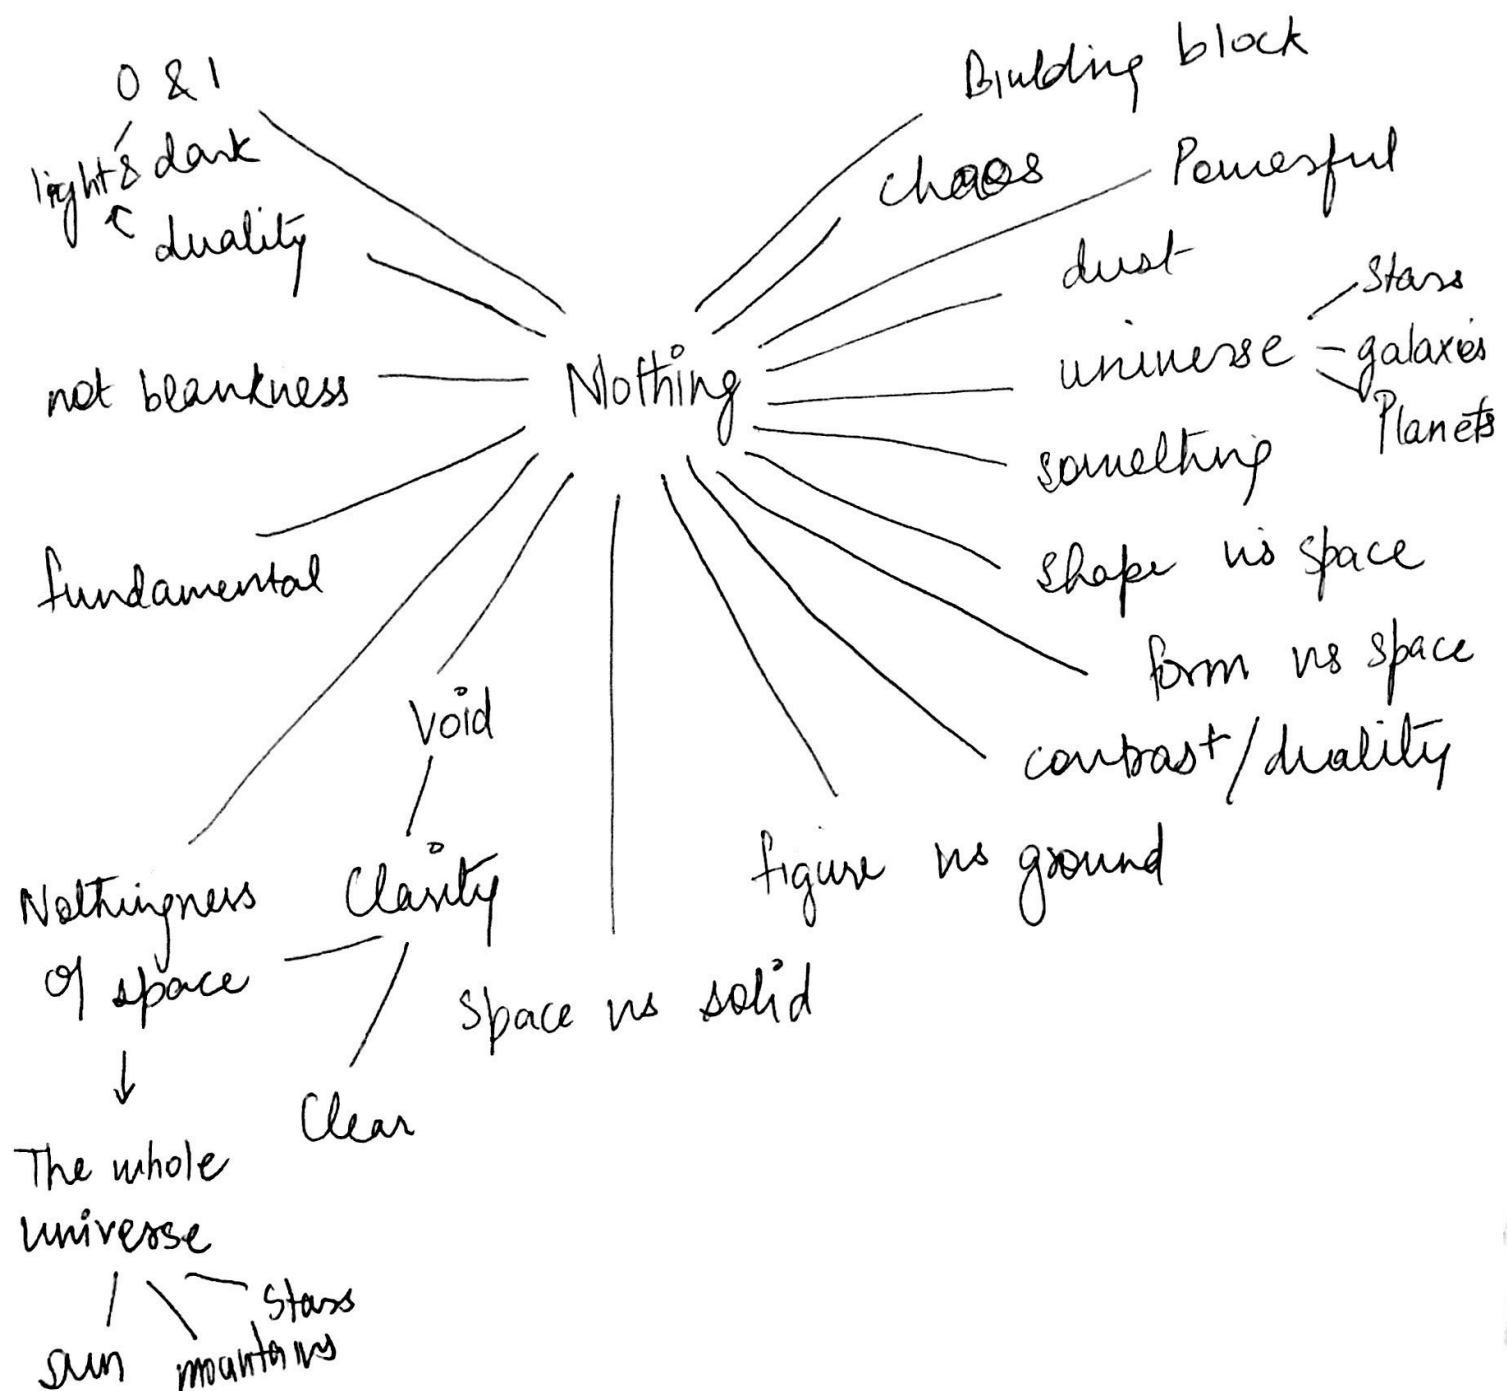 0 & 1
light & dark
duality
not blankness
fundamental
Nothing
Building block
chaos
Powerful
dust
universe
Stars
galaxies
Planets
something
shape vs space
form vs space
contrast/duality
figure vs ground
space vs solid
Void
Clarity
Clear
Nothingness
Of space
The whole
universe
sun
mountains
stars